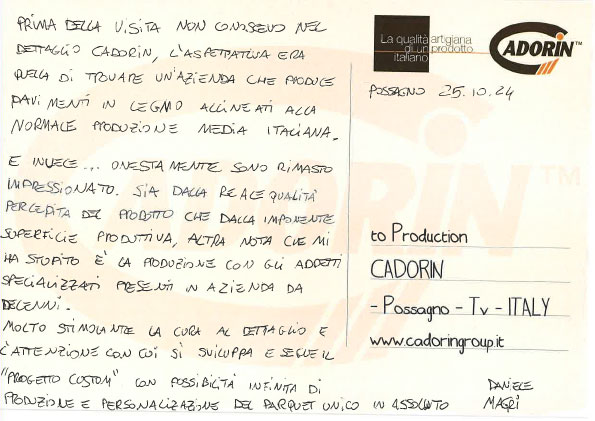 PRIMA DELLA VISITA NON CONOSCEVO NEL
DETTAGLIO CADORIN, L'ASPETTATIVA ERA
QUELLA DI TROVARE UN'AZIENDA CHE PRODUCE
PAVIMENTI IN LEGNO ALLINEATI ALLA
NORMALE PRODUZIONE MEDIA ITALIANA.
E INVECE... ONESTAMENTE SONO RIMASTO
IMPRESSIONATO. SIA DALLA REALE QUALITÀ
PERCEPITA DEL PRODOTTO CHE DALLA IMPONENTE
SUPERFICIE PRODUTTIVA, ALTRA NOTA CHE MI
HA STUPITO È LA PRODUZIONE CON GLI ADDETTI
SPECIALIZZATI PRESENTI IN AZIENDA DA
DECENNI.
MOLTO STIMOLANTE LA CURA AL DETTAGLIO E
L'ATTENZIONE CON CUI SI SVILUPPA E SEGUE IL
"PROGETTO CUSTOM" CON POSSIBILITÀ INFINITA DI
PRODUZIONE E PERSONALIZAZIONE DEL PARQUET UNICO IN ASSOLUTO
La qualità artigiana
di un prodotto
italiano
CADORIN™
POSSAGNO 25.10.24
to Production
CADORIN
- Possagno - Tv - ITALY
www.cadoringroup.it
DANIELE
MAGRÌ
CADORIN™